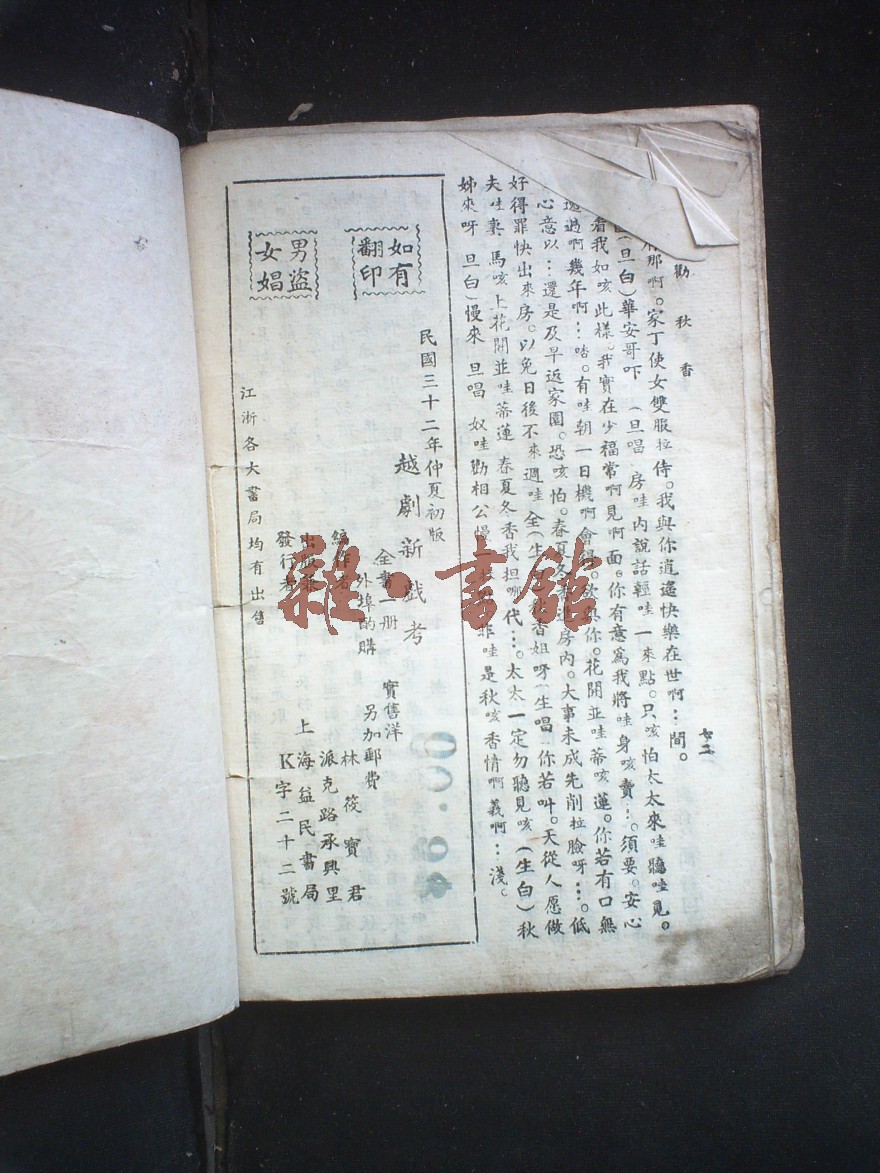 勸秋香
七二
那啊。家丁使女雙服拉侍。我與你逍遙快樂在世啊…間。
(旦白)華安哥吓 (旦唱 房哇內說話輕哇一來點。只咳怕太太來哇聽哇見。
看我如咳此樣。我實在少福常啊見啊面。你有意爲我將哇身咳賣…。須要。安心
過啊幾年啊…咾。有哇朝一日機啊會得。你。花開並哇蒂咳蓮。你若有口無
心意以…還是及早返家園。恐咳怕。春夏冬房內。大事未成先削拉臉呀…。低
好得罪快出來房。以免日後不來週哇全(生香姐呀 生唱 你若叶。天從人愿做
夫哇妻 馬咳上花開並哇蒂蓮 春夏冬香我担哪代…。太太一定勿聽見咳(生白)秋
姊來呀 旦白)慢來 旦唱 奴哇勸相公慢非哇是秋咳香情啊義啊…淺。
如有
翻印
男盜
女娼
民國三十二年仲夏初版
越劇新戲考
全書一册 實售洋
外埠酌購 另加郵費
編作者 林筱寶君
出版兼 派克路承興里
發行者 上海益民書局
K字二十二號
江浙各大書局均有出售
雜·書館